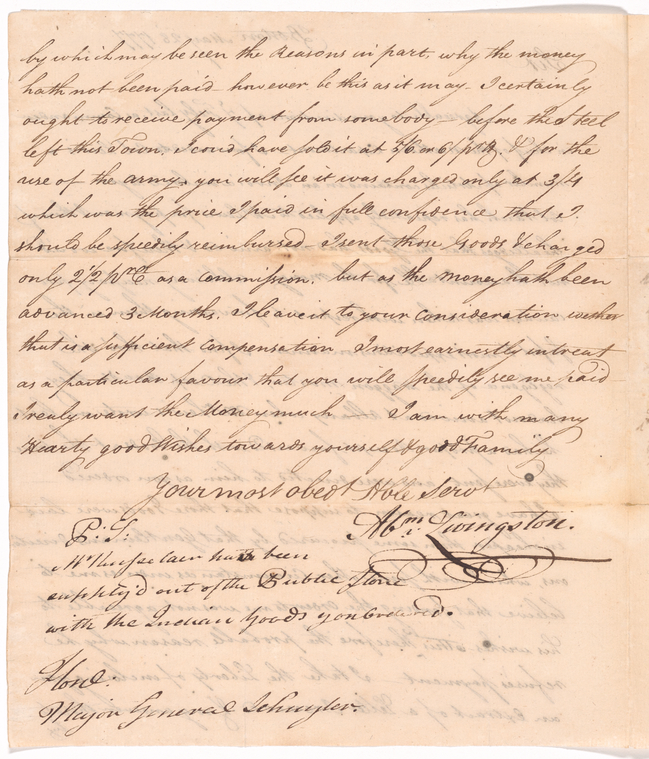 by which may be seen the Reasons in part, why the money
hath not been paid - however be this as it may - I certainly
ought to receive payment from somebody - before the Steel
left this Town. I cou'd have sold it at 5/6 or 6/ pr lb. & for the
use of the army, you will see it was charged only at 3/4
which was the price I paid in full confidence that I
should be speedily reimbursed - I sent those Goods & charged
only 2 1/2 pr Ct as a Commission. but as the money hath been
advanced 3 Months. I leave it to your Consideration wether
that is a sufficient Compensation I most earnestly intreat
as a particular favour that you will speedily see me paid -
I realy want the Money much I am with many
Hearty good Wishes towards yourself & good Family
Your most obedt Hble Servt
Abm Livingston.
P: S:
Mr has been
supply'd out of the Public Store
with the Indian Goods you Ordered.
Honl:
Major General Schuyler.